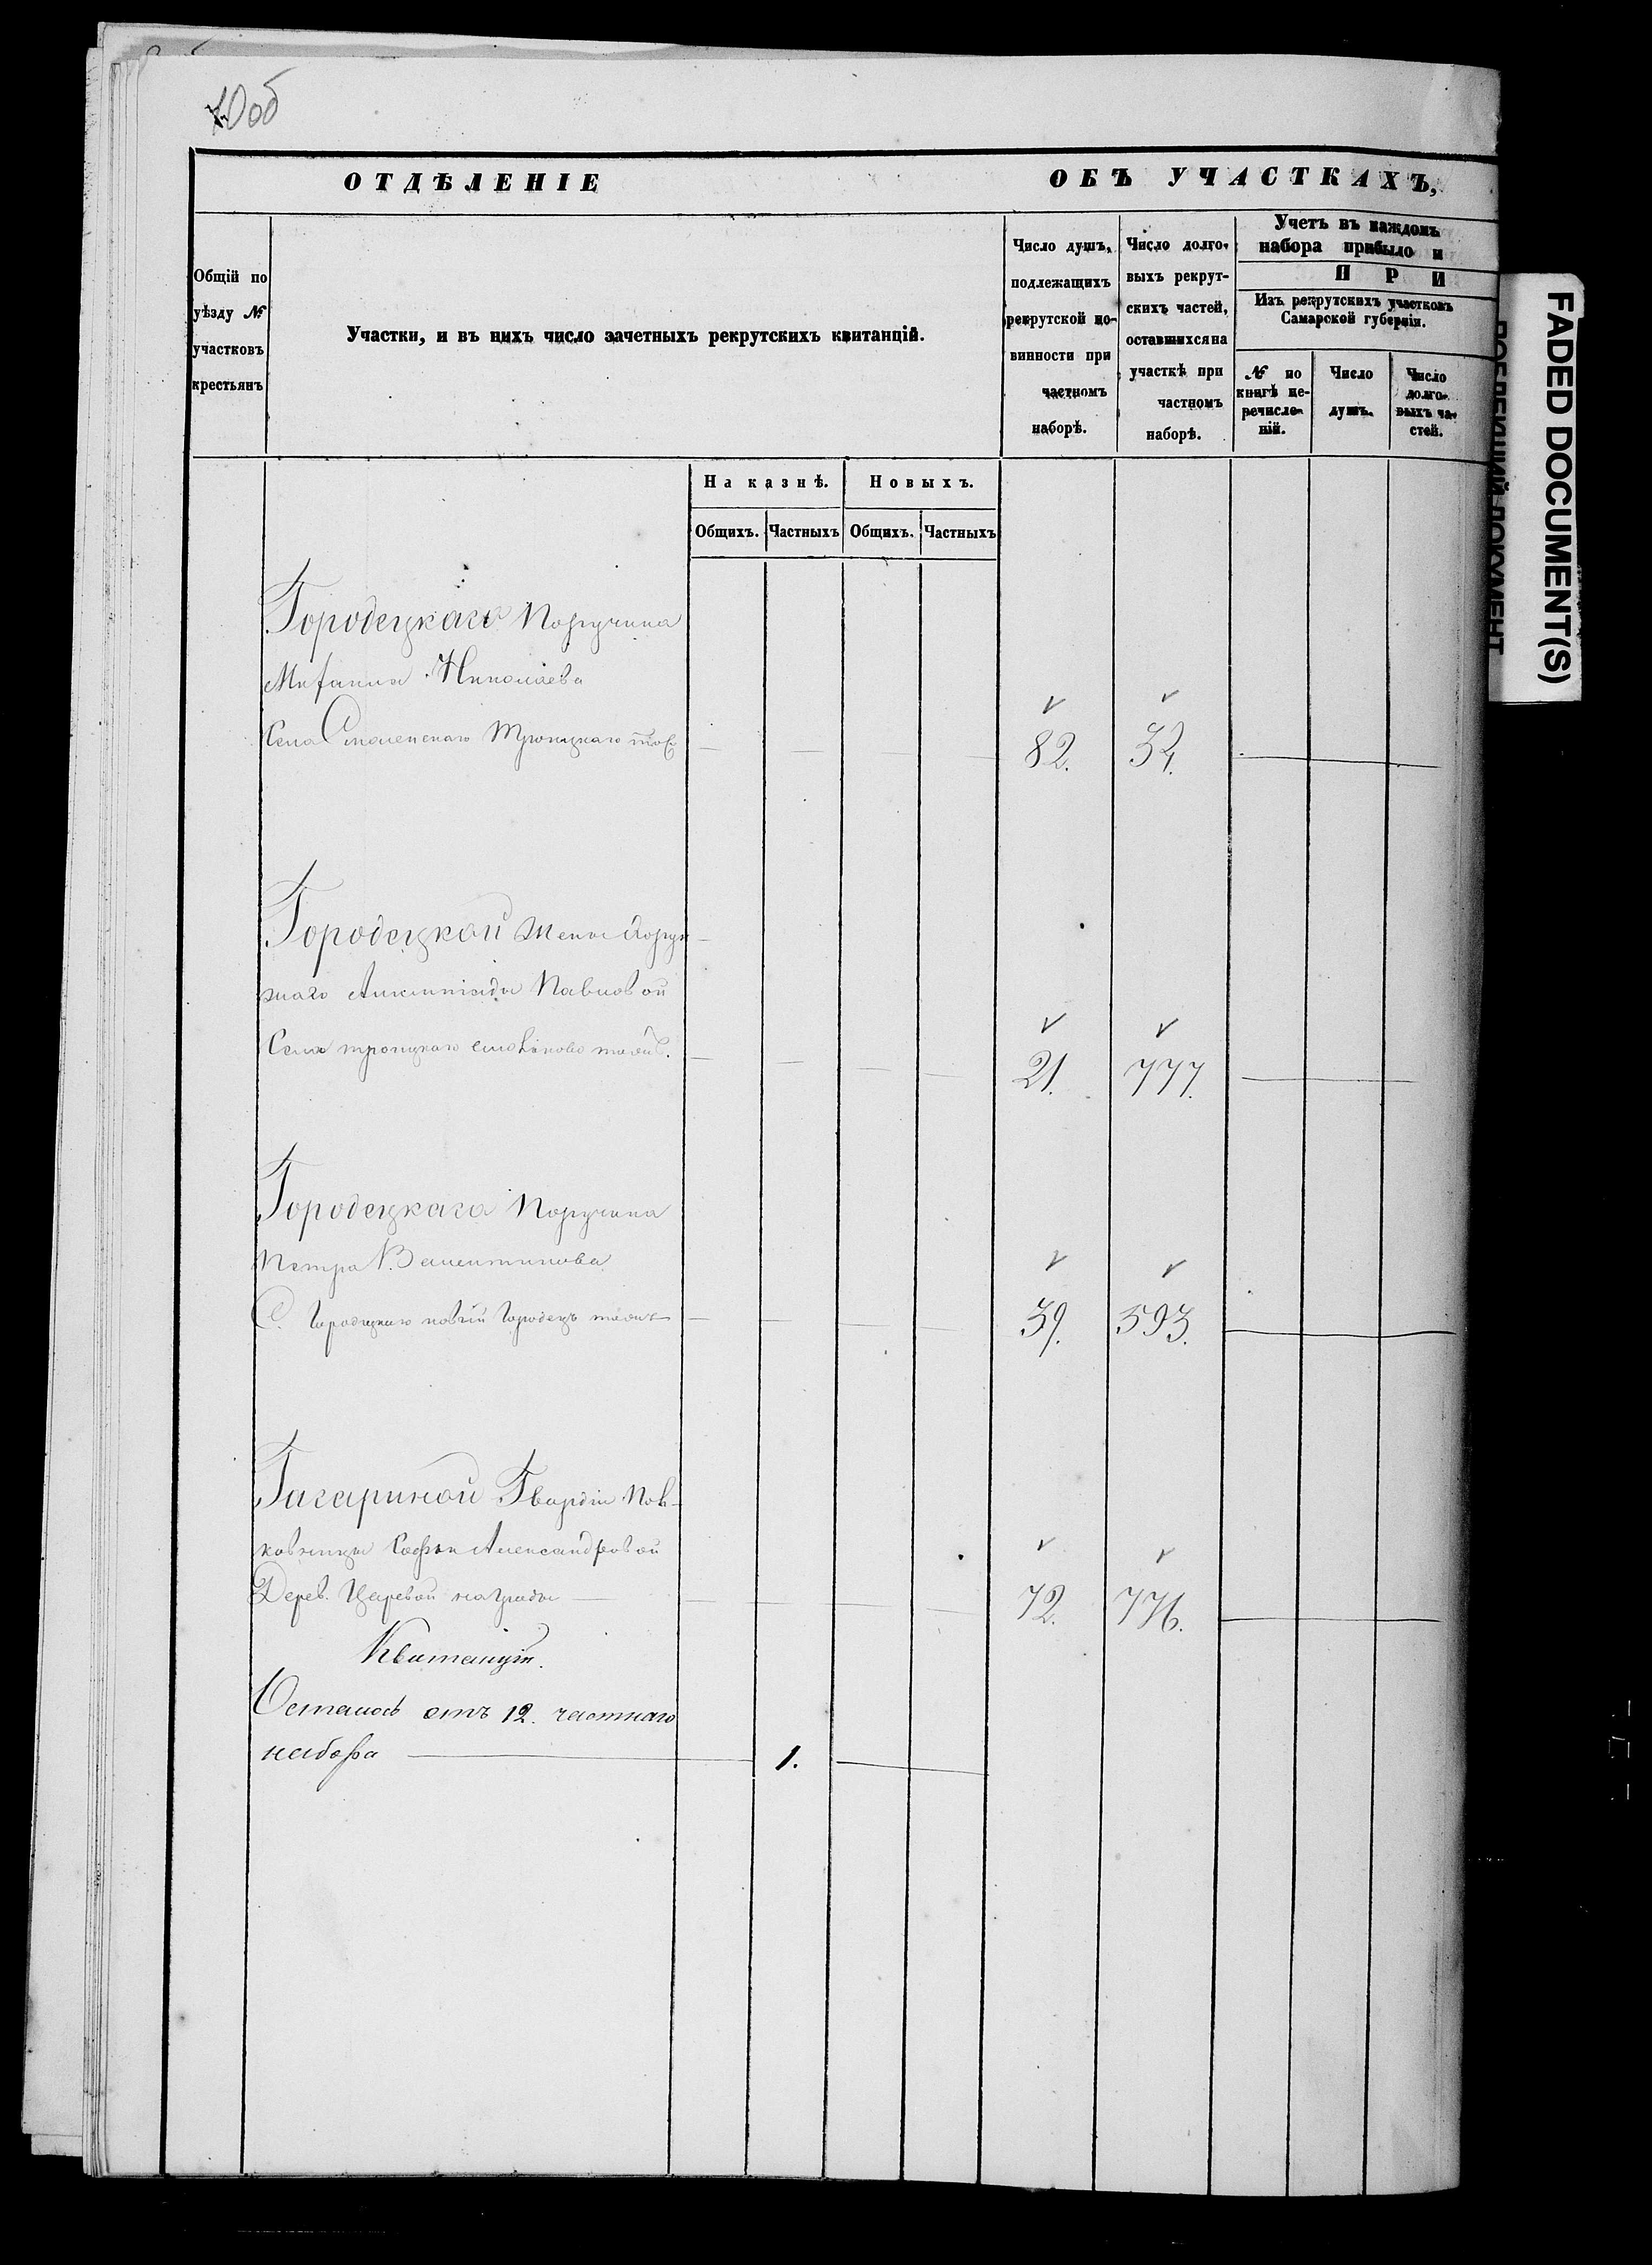 10об
ОТДѢЛЕНІЕ ОБЪ УЧАСТКАХЪ,
Общій по уѣзду № участковъ крестьянъ
Участки, и въ нихъ число зачетныхъ рекрутскихъ квитанцій.
Число душъ, подлежащихъ рекрутской повинности при частномъ наборѣ.
Число долговыхъ рекрутскихъ частей, оставшихся на участкѣ при частномъ наборѣ.
Учетъ въ каждомъ
набора прибыло и
П Р И
Изъ рекрутскихъ участковъ
Самарской губерніи.
№ по книгѣ перечисленій.
Число душъ.
Число долговыхъ частей.
На казнѣ. Новыхъ.
Общихъ. Частныхъ Общихъ. Частныхъ
Городецкаго Поручика
Николаева
Села Смоленскаго Троицкаго 82. 34.
Городецкой жены
Павловой
Села троицкаго 21. 777.
Городецкаго Поручика
Петра Валентинова
С. Городецкаго новый Городецъ 39. 593.
Гагариной Гвардіи Пол-
ковницы Софьи Александровой
Дерев. Царевой 72. 776.
Квитанціи.
Осталось отъ 12. частнаго
набора 1.
FADED DOCUMENT(S)
ДОКУМЕНТ